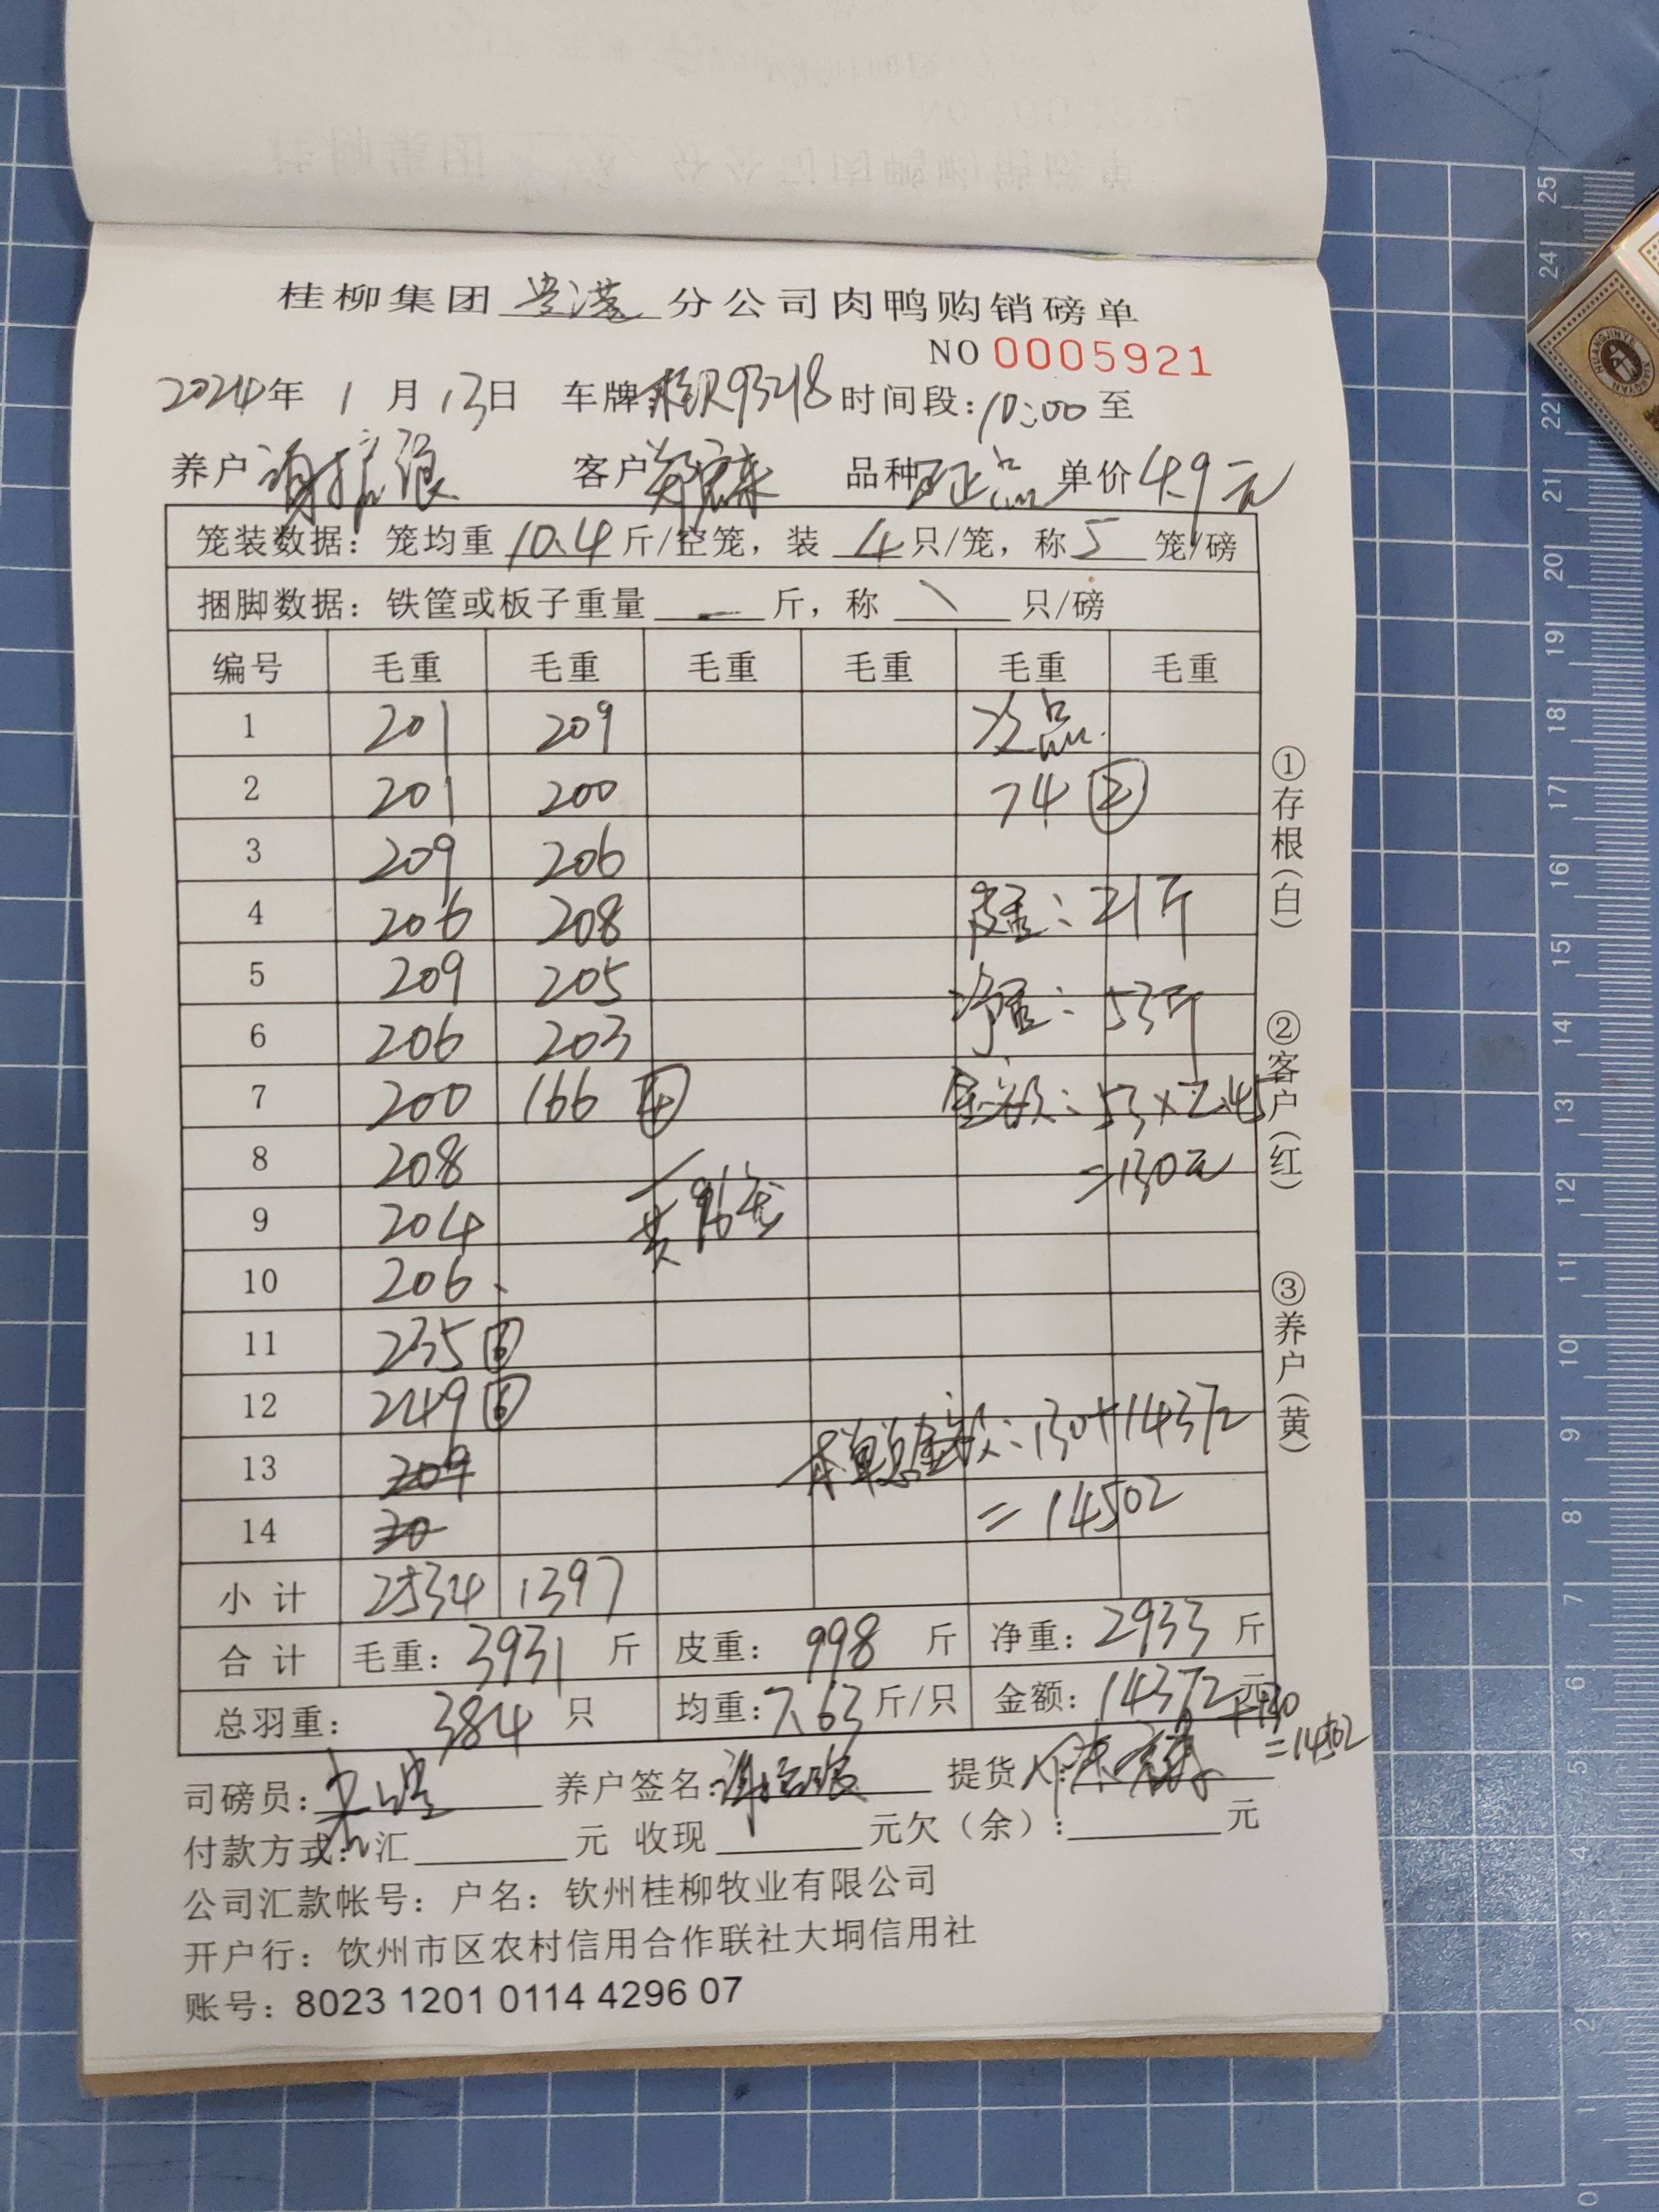 桂柳集团 贵港 分公司肉鸭购销磅单
NO 0005921
2024年 1 月 13日 车牌 桂R93218 时间段: 10:00 至
养户 客户 品种 正品 单价 4.9元
笼装数据: 笼均重 10.4 斤/空笼, 装 4 只/笼, 称 5 笼/磅
捆脚数据: 铁筐或板子重量 — 斤, 称 \ 只/磅
编号 毛重 毛重 毛重 毛重 毛重 毛重
1 201 209 次品
2 201 200 74 ②
3 209 206
4 206 208 皮重: 21斤
5 209 205 净重: 53斤
6 206 203
7 200 166 ④ 金额: 53×2.45
8 208 =130元
9 204 共96笼
10 206
11 235 ⑥
12 249 ⑥ 本单总金额: 130+14372
13 209
14 20 = 14502
小计 2534 1397
合计 毛重: 3931 斤 皮重: 998 斤 净重: 2933 斤
总羽重: 384 只 均重: 7.63 斤/只 金额: 14372 元 +130
=14502
司磅员: 养户签名: 提货人:
付款方式: 汇 元 收现 元欠(余): 元
公司汇款帐号: 户名: 钦州桂柳牧业有限公司
开户行: 饮州市区农村信用合作联社大垌信用社
账号: 8023 1201 0114 4296 07
①存根(白)
②客户(红)
③养户(黄)
25
24
22
21
20
19
18
17
16
15
14
13
12
11
10
9
8
7
6
5
4
3
2
1
0